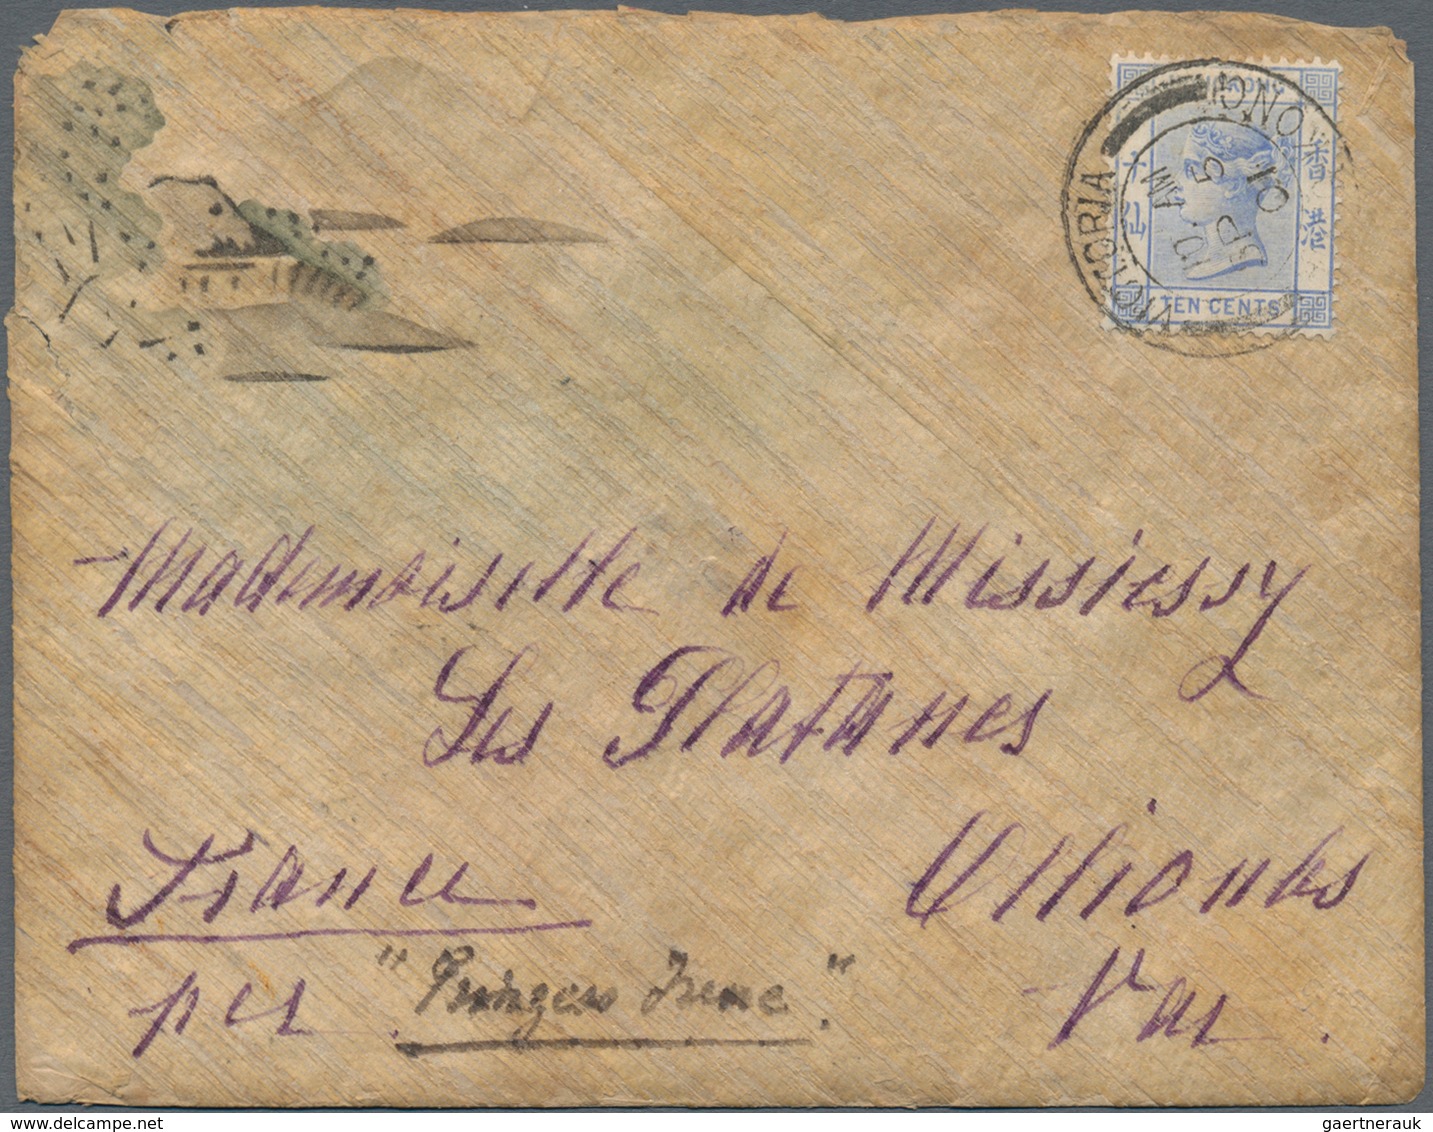 HONG KONG
香港
TEN CENTS
VICTORIA
HONG
10. AM
SP 5
01
Mademoiselle de Missiessy
Les Platanes
Ollioules
France
per "Prinzess Irene".
Var.
gaertnerauk